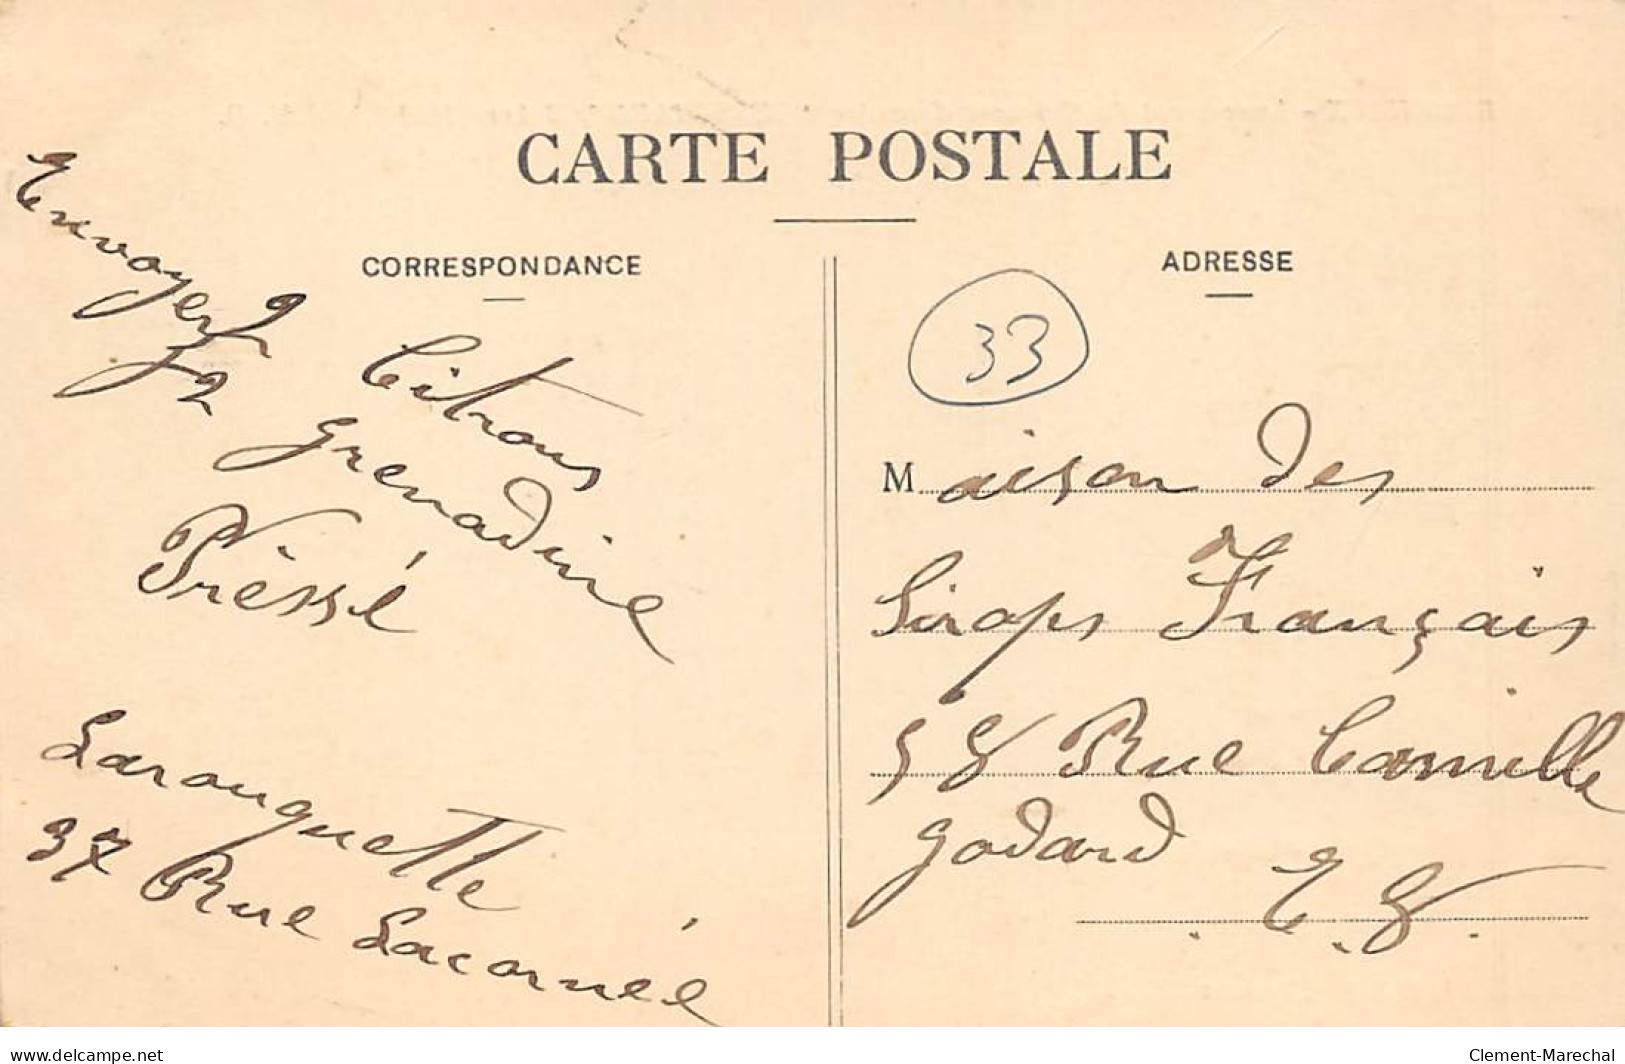 CARTE POSTALE
CORRESPONDANCE
Envoyer
2 Citrons
2 grenadine
Préssé
Larouquette
37 Rue Lacornée
ADRESSE
33
Maison des
Sirops Français
58 Rue Camille
godard
E. V.
delcampe.net
Clement-Marechal